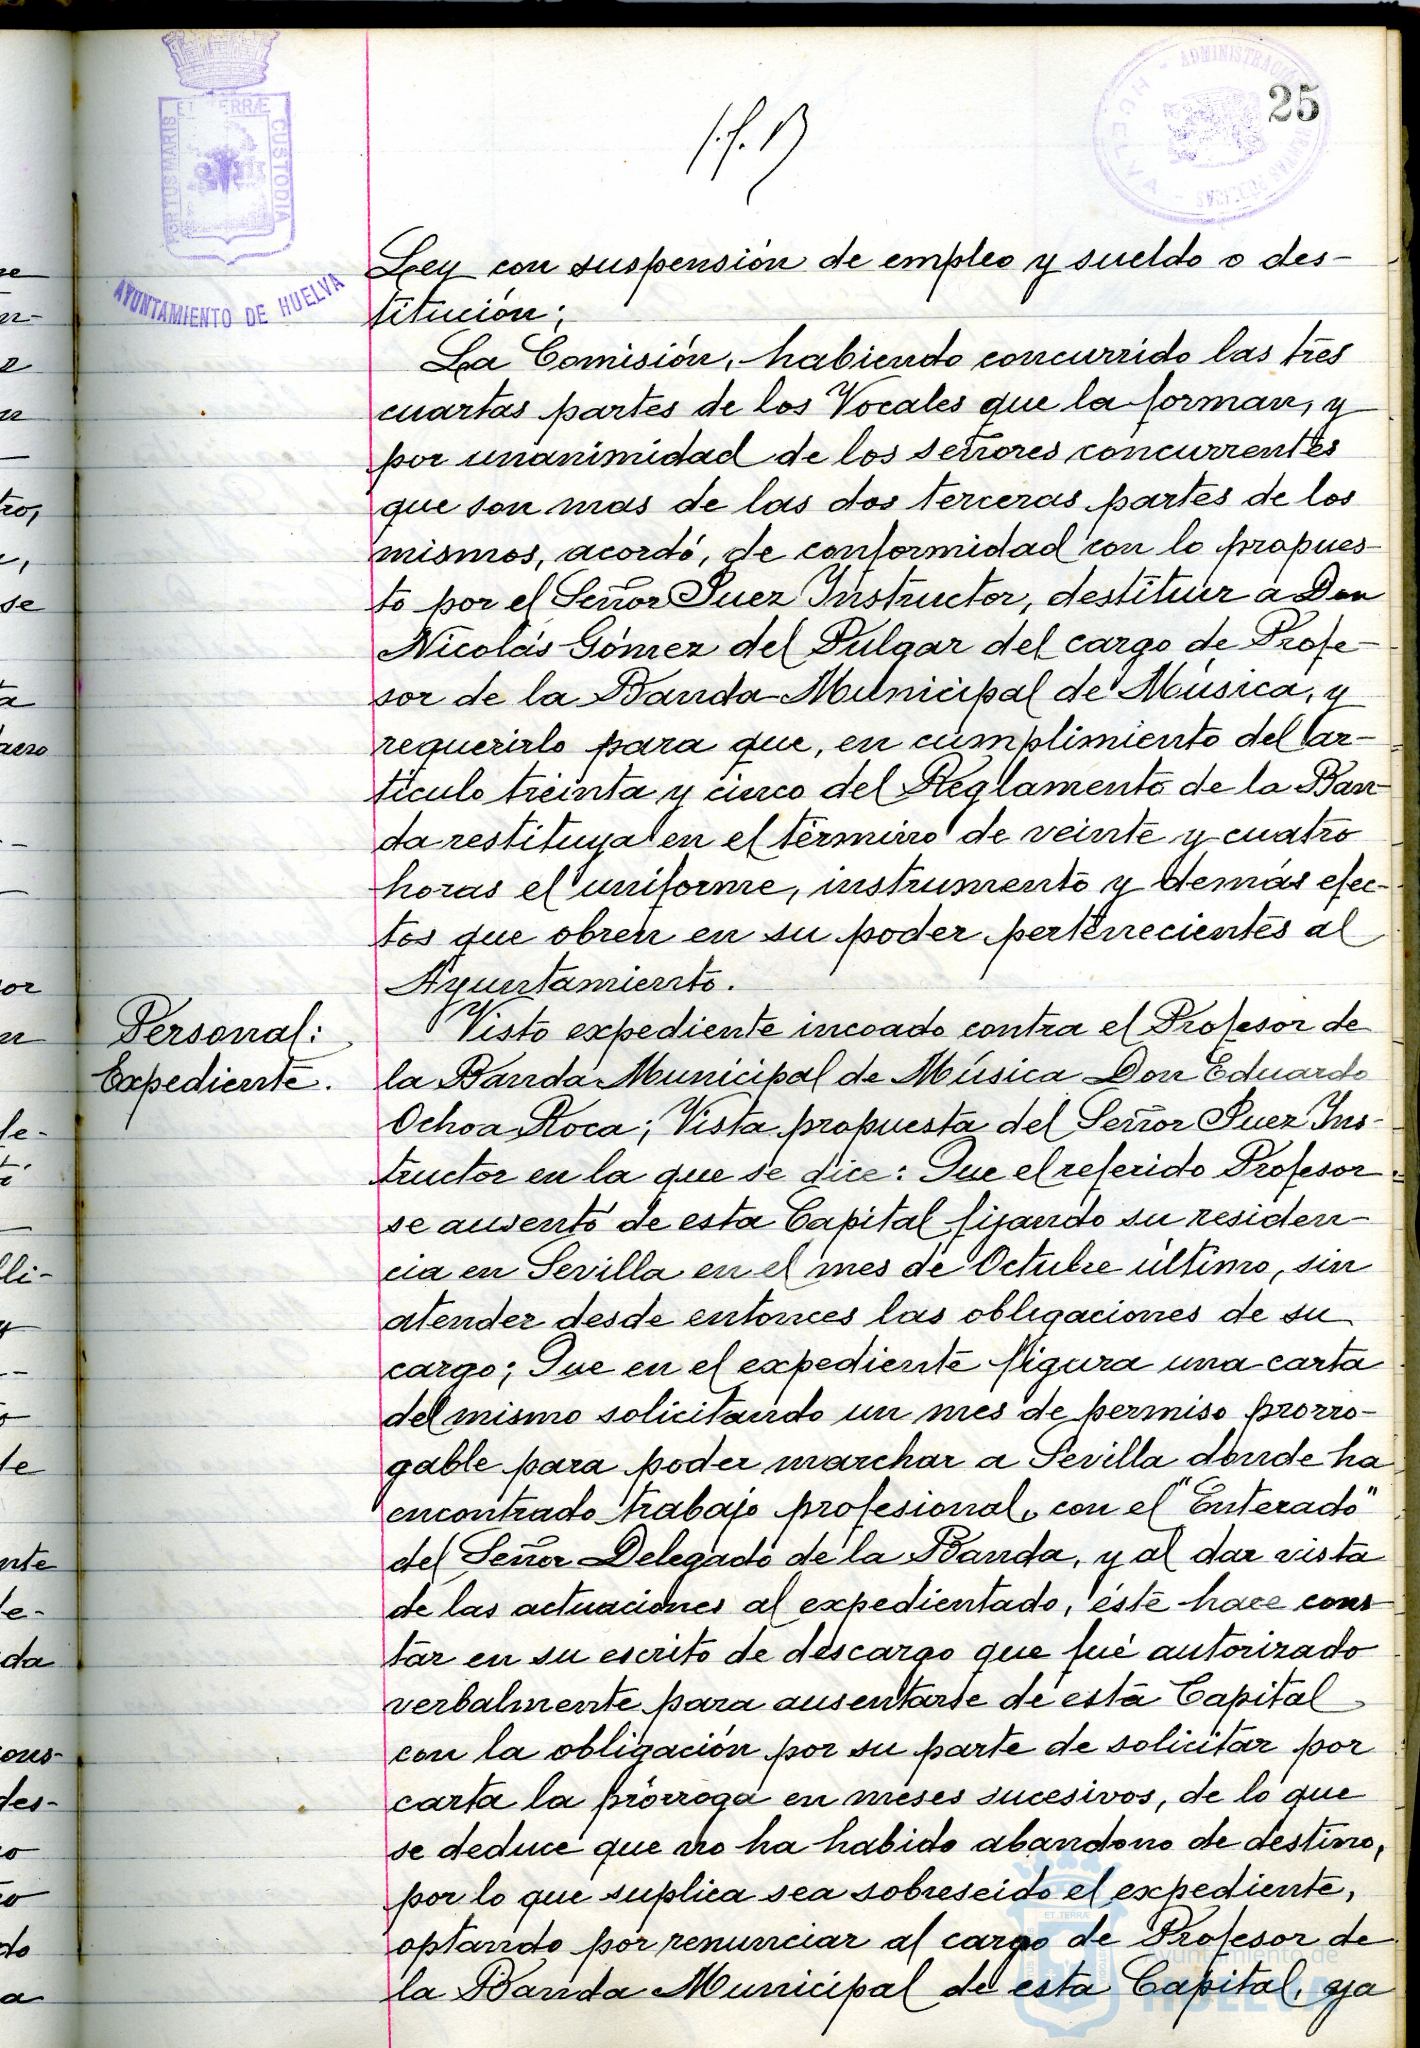 25
PORTUS MARIS ET TERRÆ CUSTODIA
AYUNTAMIENTO DE HUELVA
ADMINISTRACIÓN RENTAS PÚBLICAS
HUELVA
Ley con suspensión de empleo y sueldo o des-
titución;
La Comisión, habiendo concurrido las tres
cuartas partes de los Vocales que la forman, y
por unanimidad de los señores concurrentes
que son mas de las dos terceras partes de los
mismos, acordó, de conformidad con lo propues-
to por el Señor Juez Instructor, destituir a Don
Nicolás Gómez del Pulgar del cargo de Profe-
sor de la Banda Municipal de Música, y
requerirlo para que, en cumplimiento del ar-
tículo treinta y cinco del Reglamento de la Ban-
da restituya en el término de veinte y cuatro
horas el uniforme, instrumento y demás efec-
tos que obren en su poder pertenecientes al
Ayuntamiento.
Personal:
Expediente.
Visto expediente incoado contra el Profesor de
la Banda Municipal de Música Don Eduardo
Ochoa Roca; Vista propuesta del Señor Juez Ins-
tructor en la que se dice: Que el referido Profesor
se ausentó de esta Capital fijando su residen-
cia en Sevilla en el mes de Octubre último, sin
atender desde entonces las obligaciones de su
cargo; Que en el expediente figura una carta
del mismo solicitando un mes de permiso prorro-
gable para poder marchar a Sevilla donde ha
encontrado trabajo profesional, con el "Enterado"
del Señor Delegado de la Banda, y al dar vista
de las actuaciones al expedientado, éste hace cons-
tar en su escrito de descargo que fué autorizado
verbalmente para ausentarse de esta Capital
con la obligación por su parte de solicitar por
carta la prórroga en meses sucesivos, de lo que
se deduce que no ha habido abandono de destino,
por lo que suplica sea sobreseido el expediente,
optando por renunciar al cargo de Profesor de
la Banda Municipal de esta Capital, ya
Ayuntamiento de
HUELVA